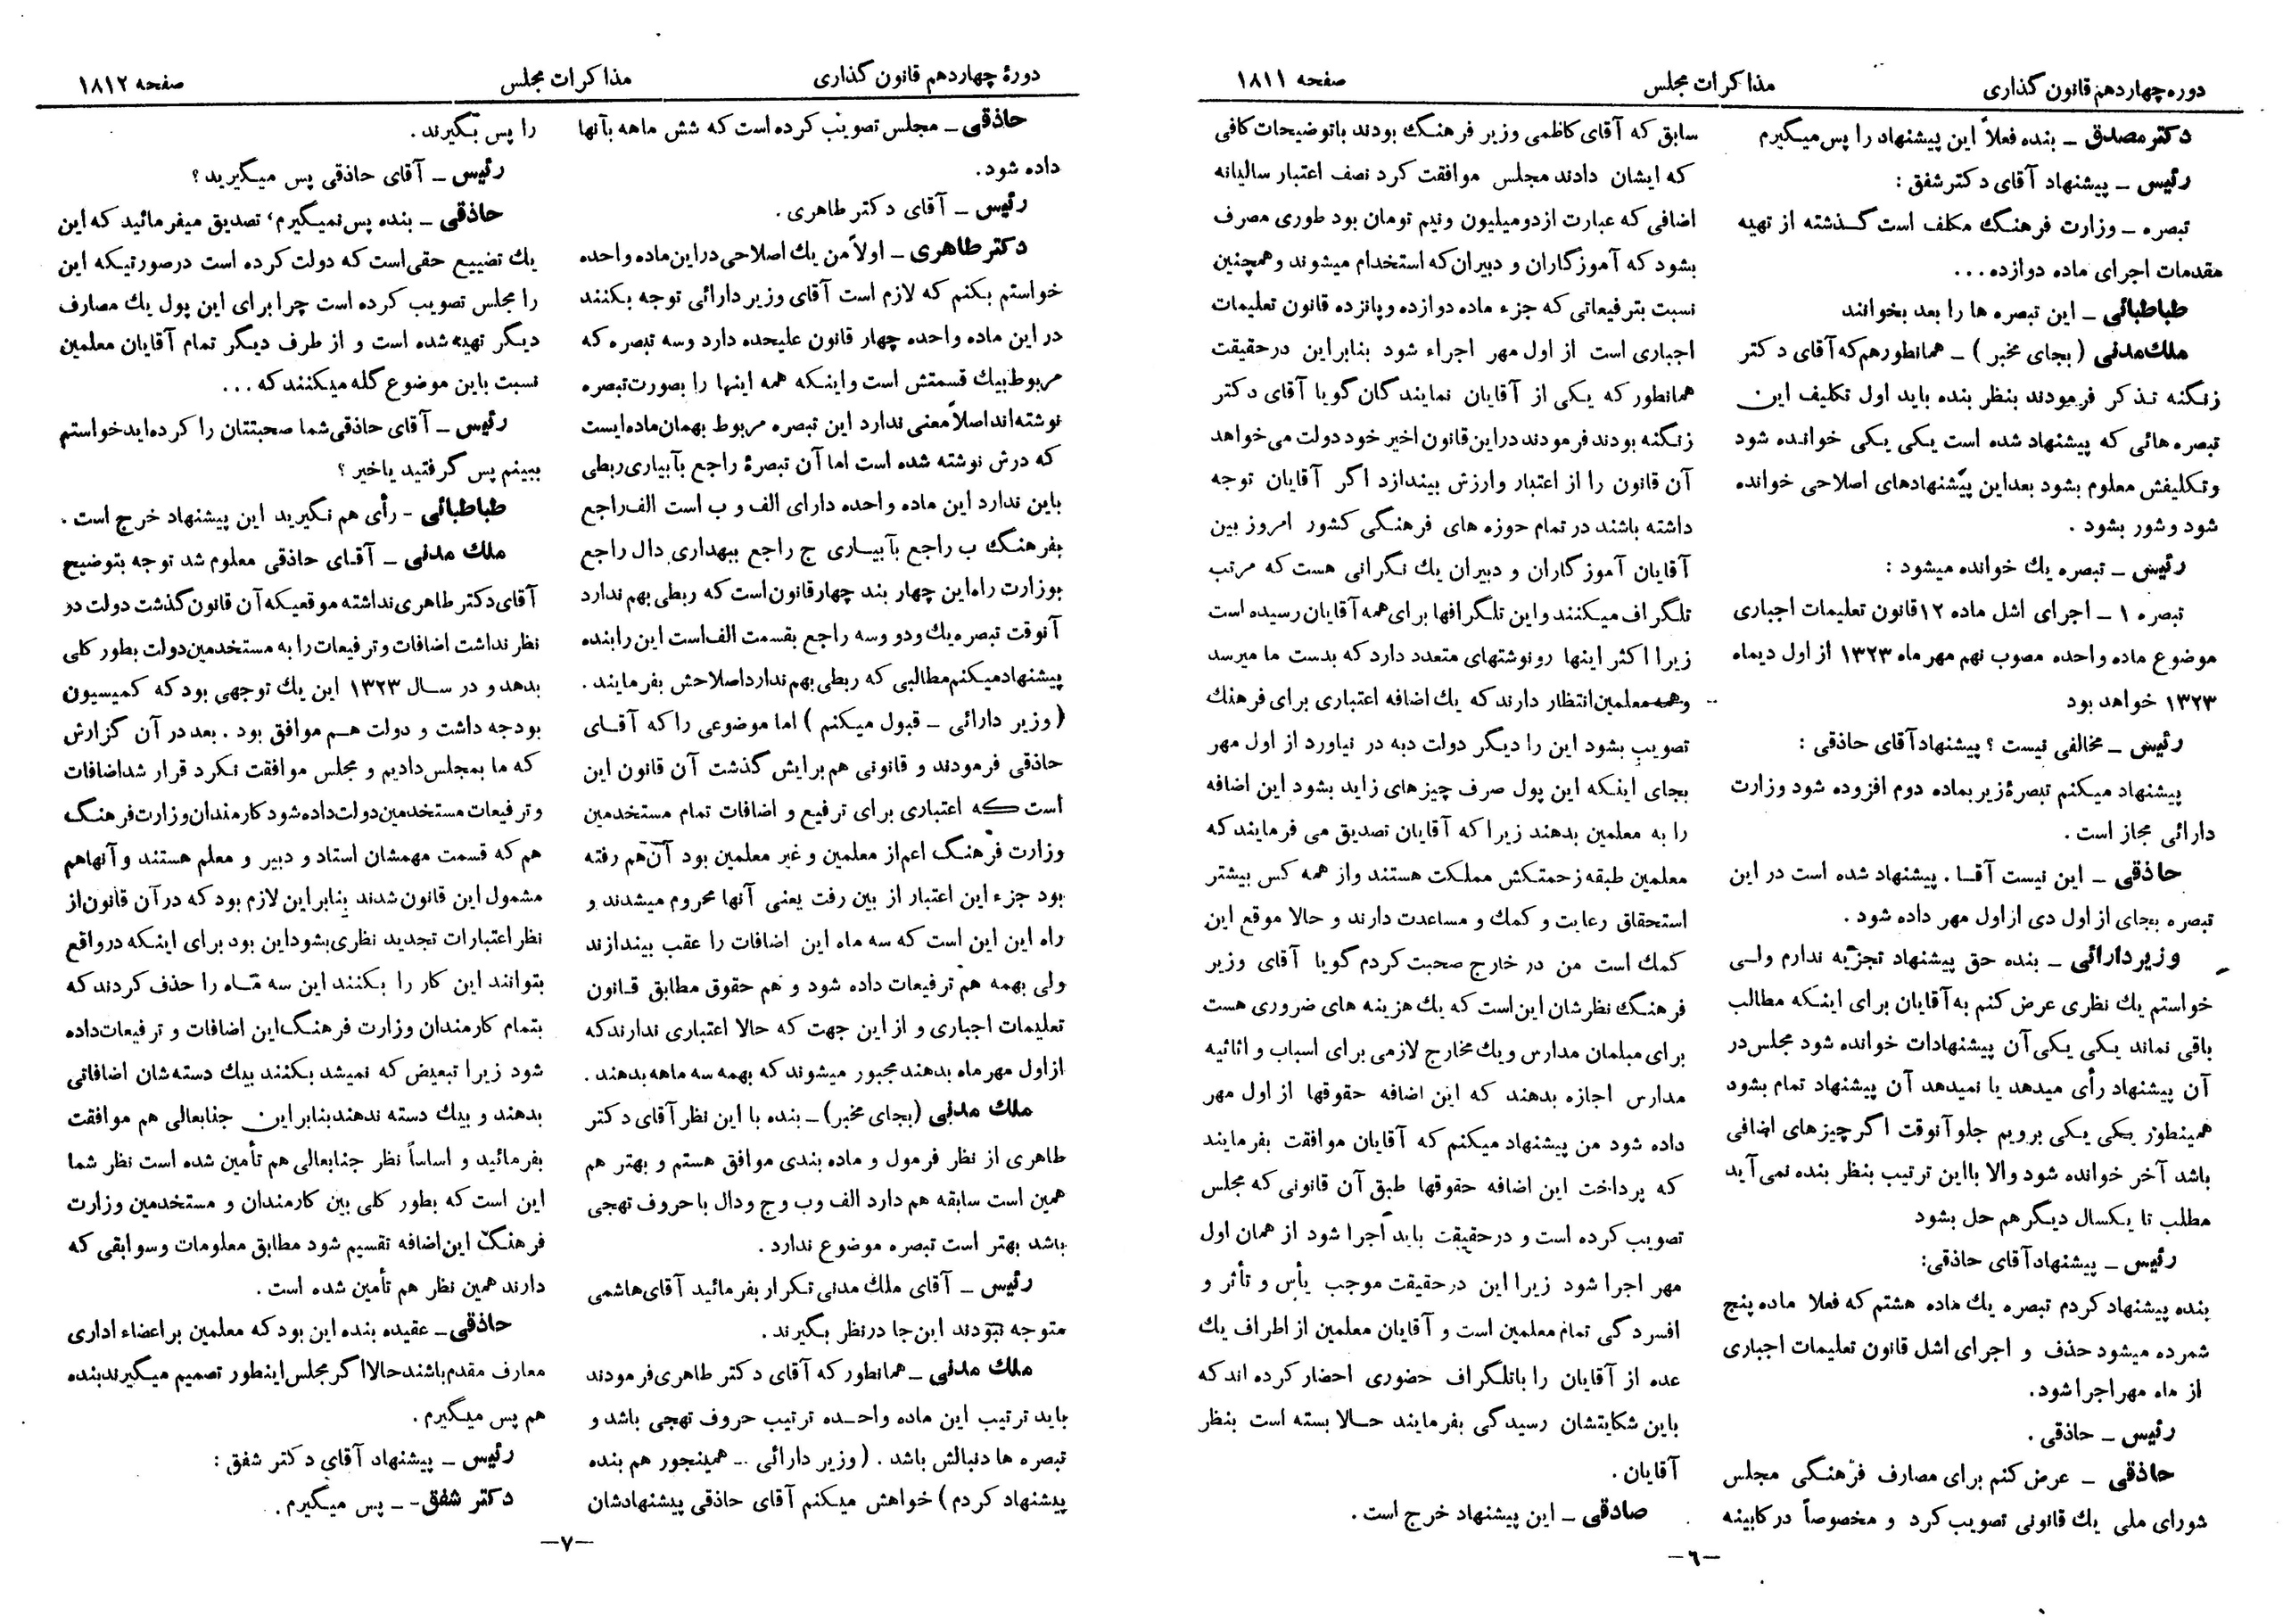 دوره چهاردهم قانون گذاری
مذاکرات مجلس
صفحه ۱۸۱۱
دکتر مصدق ـ بنده فعلاً این پیشنهاد را پس میگیرم
رئیس ـ پیشنهاد آقای دکتر شفق :
تبصره ـ وزارت فرهنگ مکلف است گذشته از تهیه
مقدمات اجرای ماده دوازده...
طباطبائی ـ این تبصره ها را بعد بخوانند
ملک مدنی ( بجای مخبر ) ـ همانطور هم که آقای دکتر
زنگنه تذکر فرمودند بنظر بنده باید اول تکلیف این
تبصره هائی که پیشنهاد شده است یکی یکی خوانده شود
و تکلیفش معلوم بشود بعد این پیشنهادهای اصلاحی خوانده
شود و شور بشود .
رئیس ـ تبصره یك خوانده میشود :
تبصره ۱ ـ اجرای اشل ماده ۱۲ قانون تعلیمات اجباری
موضوع ماده واحده مصوب نهم مهر ماه ۱۳۲۳ از اول دیماه
۱۳۲۳ خواهد بود
رئیس ـ مخالفی نیست ؟ پیشنهاد آقای حاذقی :
پیشنهاد میکنم تبصرهٔ زیر بماده دوم افزوده شود وزارت
دارائی مجاز است .
حاذقی ـ این نیست آقا . پیشنهاد شده است در این
تبصره بجای از اول دی از اول مهر داده شود .
وزیر دارائی ـ بنده حق پیشنهاد تجزیه ندارم ولی
خواستم یك نظری عرض کنم به آقایان برای اینکه مطالب
باقی نماند یکی یکی آن پیشنهادات خوانده شود مجلس در
آن پیشنهاد رأی میدهد یا نمیدهد آن پیشنهاد تمام بشود
همینطور یکی یکی برویم جلو آنوقت اگر چیزهای اضافی
باشد آخر خوانده شود والا با این ترتیب بنظر بنده نمی آید
مطلب تا یکسال دیگر هم حل بشود
رئیس ـ پیشنهاد آقای حاذقی:
بنده پیشنهاد کردم تبصره یك ماده هشتم که فعلا ماده پنج
شمرده میشود حذف و اجرای اشل قانون تعلیمات اجباری
از ماه مهر اجرا شود.
رئیس ـ حاذقی .
حاذقی ـ عرض کنم برای مصارف فرهنگی مجلس
شورای ملی یك قانونی تصویب کرد و مخصوصاً در کابینه
سابق که آقای کاظمی وزیر فرهنگ بودند با توضیحات کافی
که ایشان دادند مجلس موافقت کرد نصف اعتبار سالیانه
اضافی که عبارت از دو میلیون و نیم تومان بود طوری مصرف
بشود که آموزگاران و دبیران که استخدام میشوند و همچنین
نسبت بترفیعاتی که جزء ماده دوازده و پانزده قانون تعلیمات
اجباری است از اول مهر اجراء شود بنابراین در حقیقت
همانطور که یکی از آقایان نمایندگان گویا آقای دکتر
زنگنه بودند فرمودند در این قانون اخیر خود دولت می خواهد
آن قانون را از اعتبار و ارزش بیندازد اگر آقایان توجه
داشته باشند در تمام حوزه های فرهنگی کشور امروز بین
آقایان آموزگاران و دبیران یك نگرانی هست که مرتب
تلگراف میکنند و این تلگرافها برای همه آقایان رسیده است
زیرا اکثر اینها رونوشتهای متعدد دارد که بدست ما میرسد
و همه معلمین انتظار دارند که یك اضافه اعتباری برای فرهنگ
تصویب بشود این را دیگر دولت دبه در نیاورد از اول مهر
بجای اینکه این پول صرف چیزهای زاید بشود این اضافه
را به معلمین بدهند زیرا که آقایان تصدیق می فرمایند که
معلمین طبقه زحمتکش مملکت هستند و از همه کس بیشتر
استحقاق رعایت و کمك و مساعدت دارند و حالا موقع این
کمك است من در خارج صحبت کردم گویا آقای وزیر
فرهنگ نظرشان این است که یك هزینه های ضروری هست
برای مبلمان مدارس و یك مخارج لازمی برای اسباب و اثاثیه
مدارس اجازه بدهند که این اضافه حقوقها از اول مهر
داده شود من پیشنهاد میکنم که آقایان موافقت بفرمایند
که پرداخت این اضافه حقوقها طبق آن قانونی که مجلس
تصویب کرده است و در حقیقت باید اجرا شود از همان اول
مهر اجرا شود زیرا این در حقیقت موجب یأس و تأثر و
افسردگی تمام معلمین است و آقایان معلمین از اطراف یك
عده از آقایان را با تلگراف حضوری احضار کرده اند که
باین شکایتشان رسیدگی بفرمایند حالا بسته است بنظر
آقایان .
صادقی ـ این پیشنهاد خرج است .
ـ ۶ ـ
دورهٔ چهاردهم قانون گذاری
مذاکرات مجلس
صفحه ۱۸۱۲
حاذقی ـ مجلس تصویب کرده است که شش ماهه بآنها
داده شود .
رئیس ـ آقای دکتر طاهری .
دکتر طاهری ـ اولاً من یك اصلاحی در این ماده واحده
خواستم بکنم که لازم است آقای وزیر دارائی توجه بکنند
در این ماده واحده چهار قانون علیحده دارد و سه تبصره که
مربوط بیك قسمتش است و اینکه همه اینها را بصورت تبصره
نوشته اند اصلاً معنی ندارد این تبصره مربوط بهمان ماده ایست
که درش نوشته شده است اما آن تبصرهٔ راجع بآبیاری ربطی
باین ندارد این ماده واحده دارای الف و ب است الف راجع
بفرهنگ ب راجع بآبیاری ج راجع ببهداری دال راجع
بوزارت راه این چهار بند چهار قانون است که ربطی بهم ندارد
آنوقت تبصره یك و دو و سه راجع بقسمت الف است این را بنده
پیشنهاد میکنم مطالبی که ربطی بهم ندارد اصلاحش بفرمایند .
( وزیر دارائی ـ قبول میکنم ) اما موضوعی را که آقای
حاذقی فرمودند و قانونی هم برایش گذشت آن قانون این
است که اعتباری برای ترفیع و اضافات تمام مستخدمین
وزارت فرهنگ اعم از معلمین و غیر معلمین بود آن هم رفته
بود جزء این اعتبار از بین رفت یعنی آنها محروم میشدند و
راه این این است که سه ماه این اضافات را عقب بیندازند
ولی بهمه هم ترفیعات داده شود و هم حقوق مطابق قانون
تعلیمات اجباری و از این جهت که حالا اعتباری ندارند که
از اول مهر ماه بدهند مجبور میشوند که بهمه سه ماهه بدهند .
ملک مدنی (بجای مخبر) ـ بنده با این نظر آقای دکتر
طاهری از نظر فرمول و ماده بندی موافق هستم و بهتر هم
همین است سابقه هم دارد الف و ب و ج و دال با حروف تهجی
باشد بهتر است تبصره موضوع ندارد .
رئیس ـ آقای ملک مدنی تکرار بفرمائید آقای هاشمی
متوجه نبودند این جا در نظر بگیرند .
ملک مدنی ـ همانطور که آقای دکتر طاهری فرمودند
باید ترتیب این ماده واحده ترتیب حروف تهجی باشد و
تبصره ها دنبالش باشد . ( وزیر دارائی ـ همینجور هم بنده
پیشنهاد کردم ) خواهش میکنم آقای حاذقی پیشنهادشان
را پس بگیرند .
رئیس ـ آقای حاذقی پس میگیرید ؟
حاذقی ـ بنده پس نمیگیرم، تصدیق میفرمائید که این
یك تضییع حقی است که دولت کرده است در صورتیکه این
را مجلس تصویب کرده است چرا برای این پول یك مصارف
دیگر تهیه شده است و از طرف دیگر تمام آقایان معلمین
نسبت باین موضوع گله میکنند که ...
رئیس ـ آقای حاذقی شما صحبتتان را کرده اید خواستم
ببینم پس گرفتید یا خیر ؟
طباطبائی ـ رأی هم نگیرید این پیشنهاد خرج است .
ملک مدنی ـ آقای حاذقی معلوم شد توجه بتوضیح
آقای دکتر طاهری نداشته موقعیکه آن قانون گذشت دولت در
نظر نداشت اضافات و ترفیعات را به مستخدمین دولت بطور کلی
بدهد و در سال ۱۳۲۳ این یك توجهی بود که کمیسیون
بودجه داشت و دولت هم موافق بود . بعد در آن گزارش
که ما بمجلس دادیم و مجلس موافقت نکرد قرار شد اضافات
و ترفیعات مستخدمین دولت داده شود کارمندان وزارت فرهنگ
هم که قسمت مهمشان استاد و دبیر و معلم هستند و آنها هم
مشمول این قانون شدند بنابراین لازم بود که در آن قانون از
نظر اعتبارات تجدید نظری بشود این بود برای اینکه در واقع
بتوانند این کار را بکنند این سه ماه را حذف کردند که
بتمام کارمندان وزارت فرهنگ این اضافات و ترفیعات داده
شود زیرا تبعیض که نمیشد بکنند بیك دسته شان اضافاتی
بدهند و بیك دسته ندهند بنابراین جنابعالی هم موافقت
بفرمائید و اساساً نظر جنابعالی هم تأمین شده است نظر شما
این است که بطور کلی بین کارمندان و مستخدمین وزارت
فرهنگ این اضافه تقسیم شود مطابق معلومات و سوابقی که
دارند همین نظر هم تأمین شده است .
حاذقی ـ عقیده بنده این بود که معلمین بر اعضاء اداری
معارف مقدم باشند حالا اگر مجلس اینطور تصمیم میگیرند بنده
هم پس میگیرم .
رئیس ـ پیشنهاد آقای دکتر شفق :
دکتر شفق ـ پس میگیرم .
ـ ۷ ـ